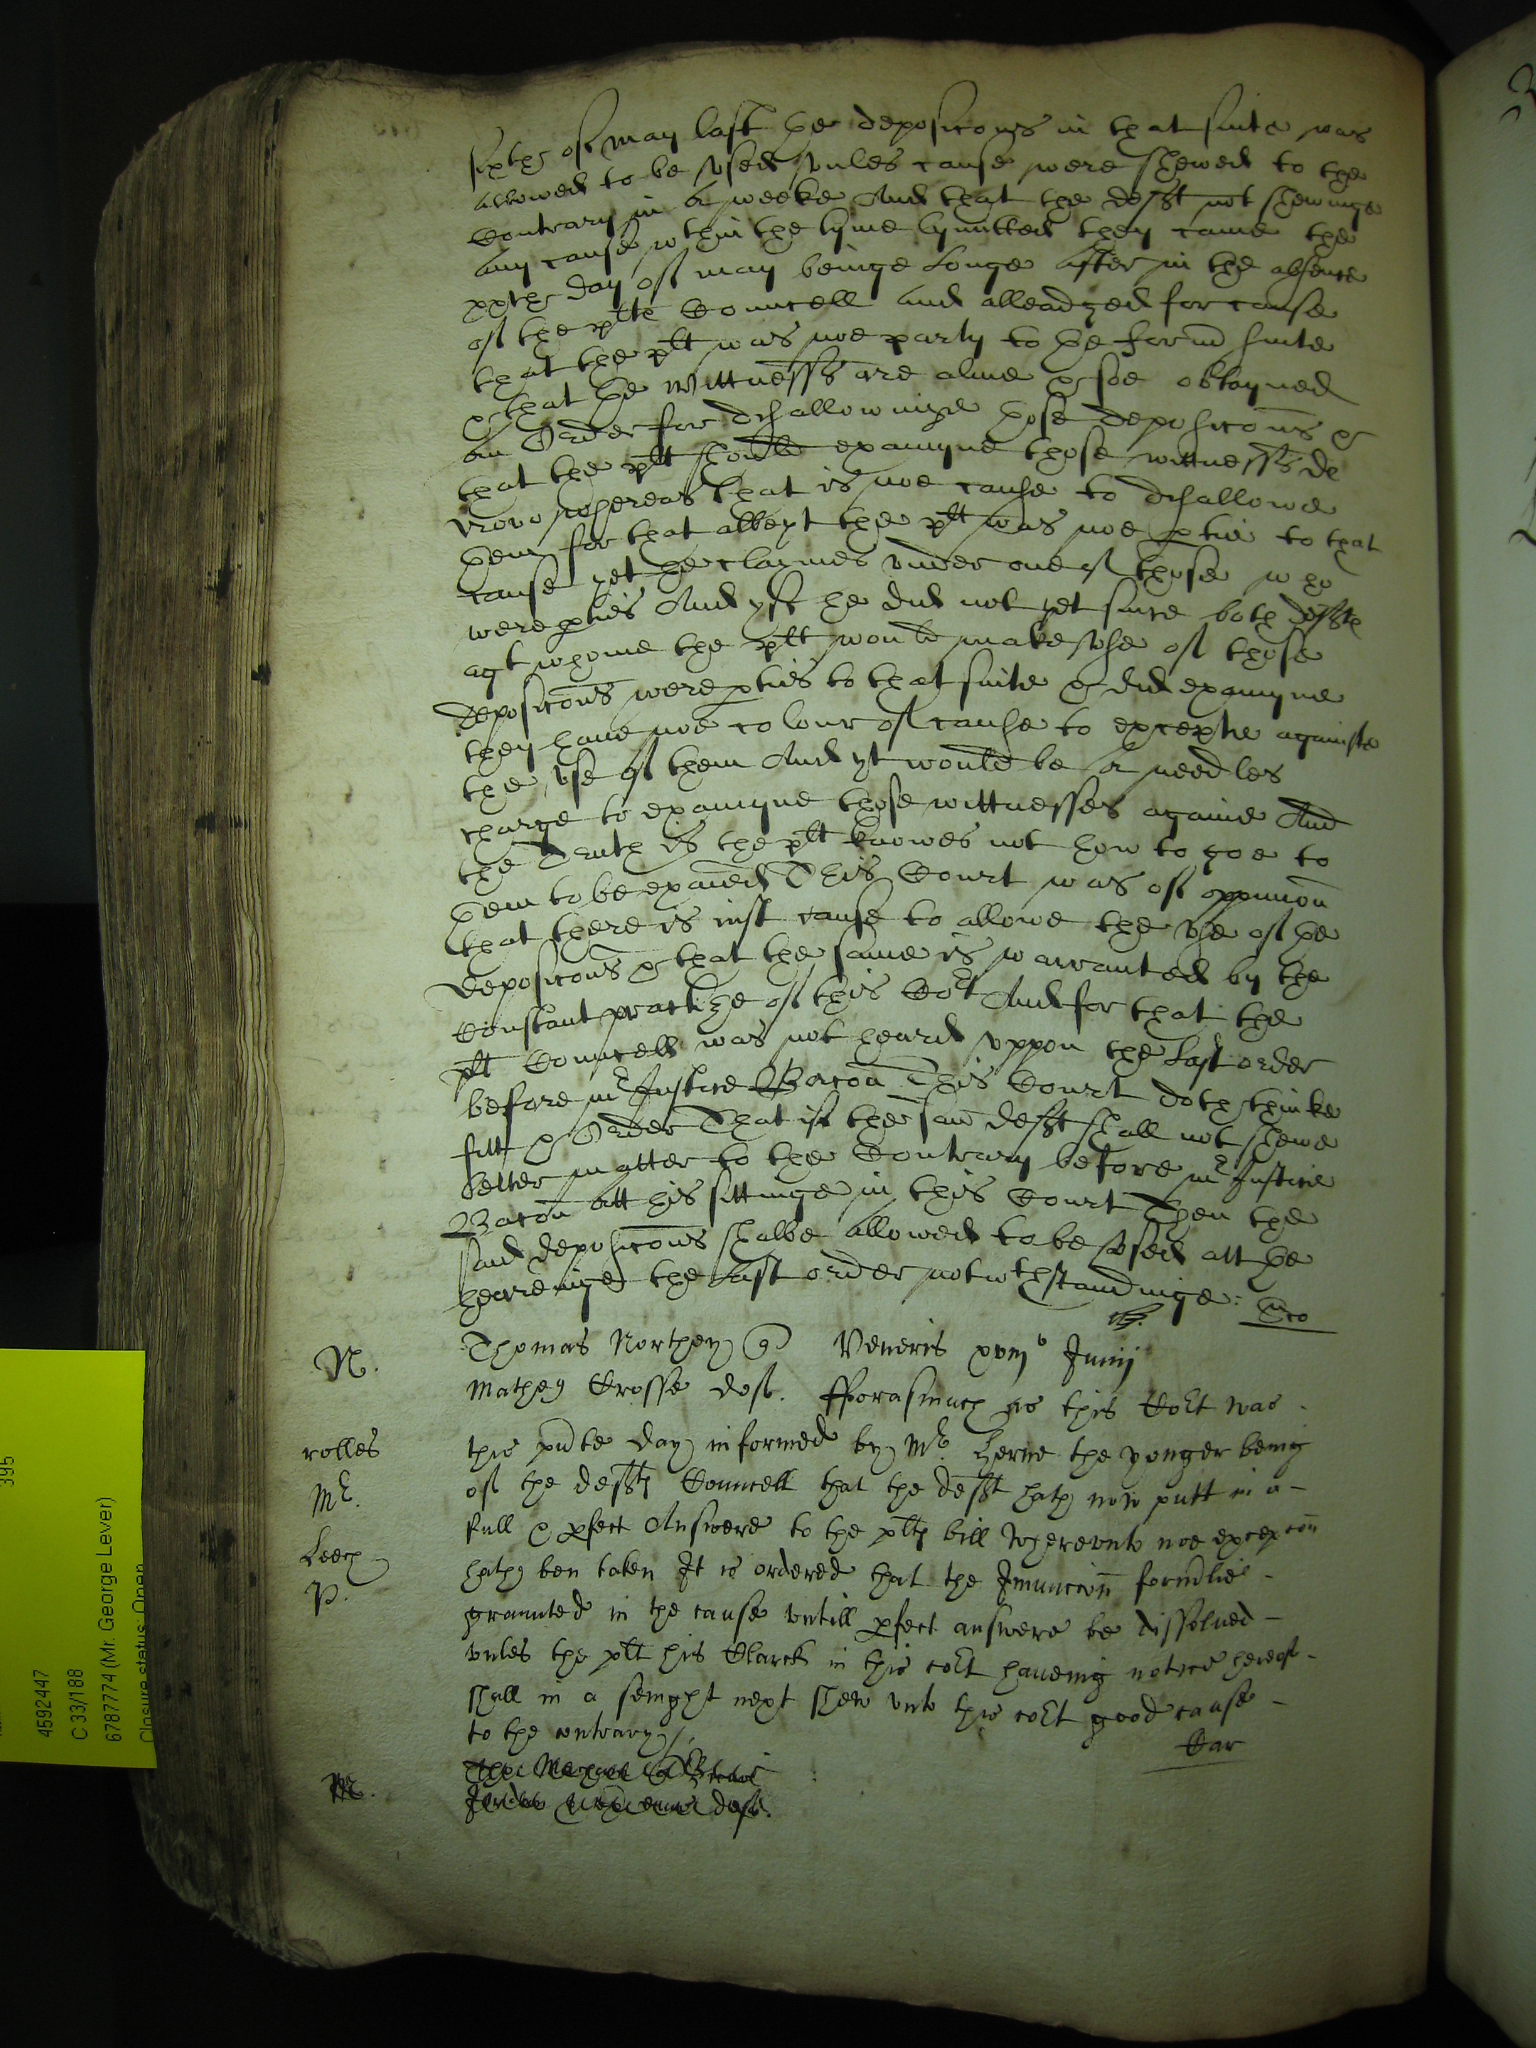 sixth of may last the deposicons in that suite was
allowed to be vsed vnles cause were shewed to the
Contrary in a weeke And that the deft not shewinge
any cause wthin the tyme lymitted they came the
xxth day of may beinge longe after in the absence
of the plts Councell and alleadged for cause
that the plt was noe party to the formr suite
& that the wittnesses are aliue & soe obtayned
an Order for disallowinge those deposicons &
that the plt should examyne those wittnesses de
novo whereas that is noe cause to disallowe
them for that albeyt the plt was noe ptie to that
cause yet he claymes vnder one of those who
were pties And yf he did not yet since both defts
agt whome the plt would make vse of those
deposicons were pties to that suite & did examyne
they haue noe colour of cause to excepte againste
the vse of them And yt would be a needles
charge to examyne those wittnesses againe And
the Truth is the plt knowes not how to goe to
them to be examed This Court was of oppinion
that there is iust cause to allowe the vse of the
deposicons & that the same is warranted by the
Constant practize of this Cort And for that the
plt Councell was not heard vppon the last order
before mr Justice Bacon This Court doth thinke
fitt & Order That if the said deft shall not shewe
better matter to the Contrary before mr Justice
Bacon att his sittinge in this Court Then the
said deposicons shalbe allowed to be vsed att the
hearinge the last order notwthstandinge:
N. Thomas Northey Veneris xviijo Junij
Mathey Crosse deft. Fforasmuch as this Cort was
rolles this pnte day informed by Mr. Herne the yonger being
Mr. of the defts Councell that the deft hath now putt in a
full & pfect Answere to the plts bill wherevnto noe excepcon
Leech hath ben taken It is ordered that the Iniunccon formlie
P. graunted in the cause vntill pfect answere be dissolued
vnles the plt his Clarck in this cort haueing notice hereof
shall in a senight next shew vnto this cort good cause
to the contrary //
Car
4592447
C 33/188
6787774 (Mr. George Lever)
Closure status: Open
395